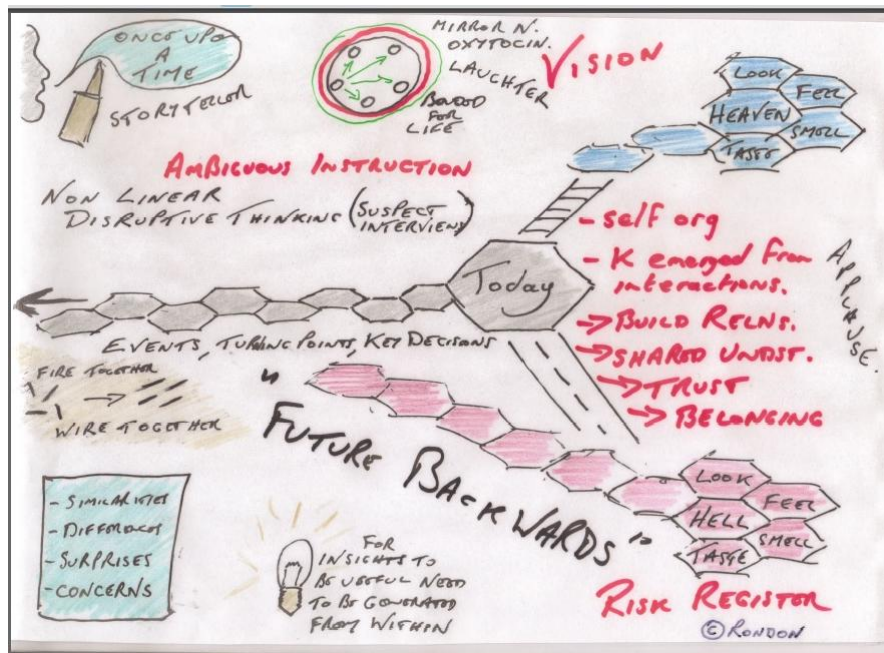 ONCE UPON
A
TIME
STORYTELLOR
MIRROR N.
OXYTOCIN.
LAUGHTER
BONDED
FOR
LIFE
VISION
LOOK
FEEL
HEAVEN
SMELL
TASTE
AMBIGUOUS INSTRUCTION
NON LINEAR
DISRUPTIVE THINKING (SUSPECT
INTERVIEW)
- self org
- K emerged from
interactions.
→ BUILD RELNS.
→ SHARED UNDST.
→ TRUST
→ BELONGING
APPLAUSE.
Today
EVENTS, TURNING POINTS, KEY DECISIONS
FIRE TOGETHER
WIRE TOGETHER
"FUTURE BACKWARDS"
LOOK
FEEL
HELL
SMELL
TASTE
- SIMILARITIES
- DIFFERENCES
- SURPRISES
- CONCERNS
FOR
INSIGHTS TO
BE USEFUL NEED
TO BE GENERATED
FROM WITHIN
RISK REGISTER
© RONDON